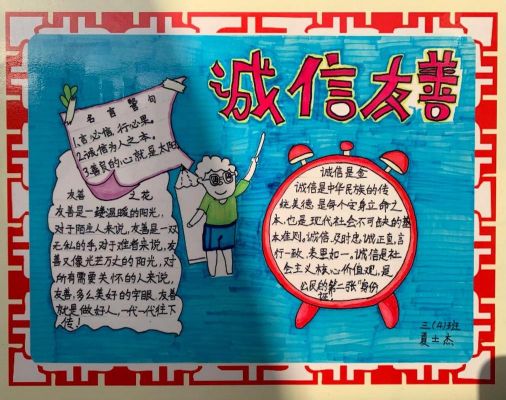 诚信友善
名言警句
1.言必信,行必果。
2.诚信为人之本。
3.善良的心就是太阳
友善之花
友善是一缕温暖的阳光,
对于陌生人来说,友善是一双
无私的手,对于难者来说,友
善又像光芒万丈的阳光,对
所有需要关怀的人来说,
友善,多么美好的字眼,友善
就是做好人,一代一代往下
传!
诚信是金
诚信是中华民族的传
统美德,是每个安身立命之
本,也是现代社会不可缺的基
本准则。诚信,及时忠,诚正直,言
行一致,表里如一。诚信是社
会主义核心价值观,是
公民的第二张"身份
证。
三(4)班
夏士杰